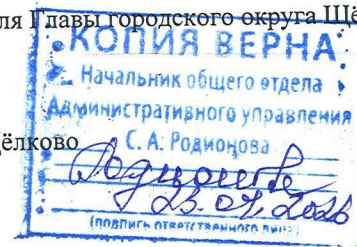 ля Главы городского округа Щё
КОПИЯ ВЕРНА
Начальник общего отдела
Административного управления
С. А. Родионова
ёлково
Родионова
2026
(подпись ответственного лица)